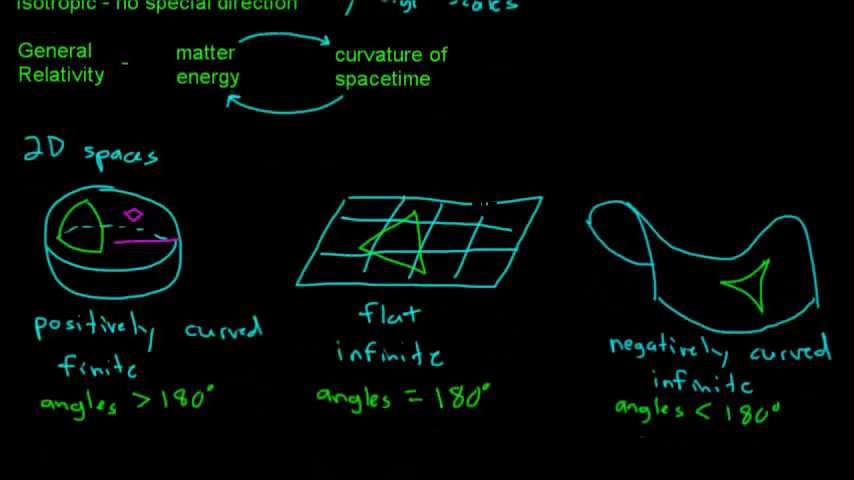 isotropic - no special direction
scales
General Relativity -
matter energy
curvature of spacetime
2D spaces
positively curved
finite
angles > 180°
flat
infinite
angles = 180°
negatively curved
infinite
angles < 180°